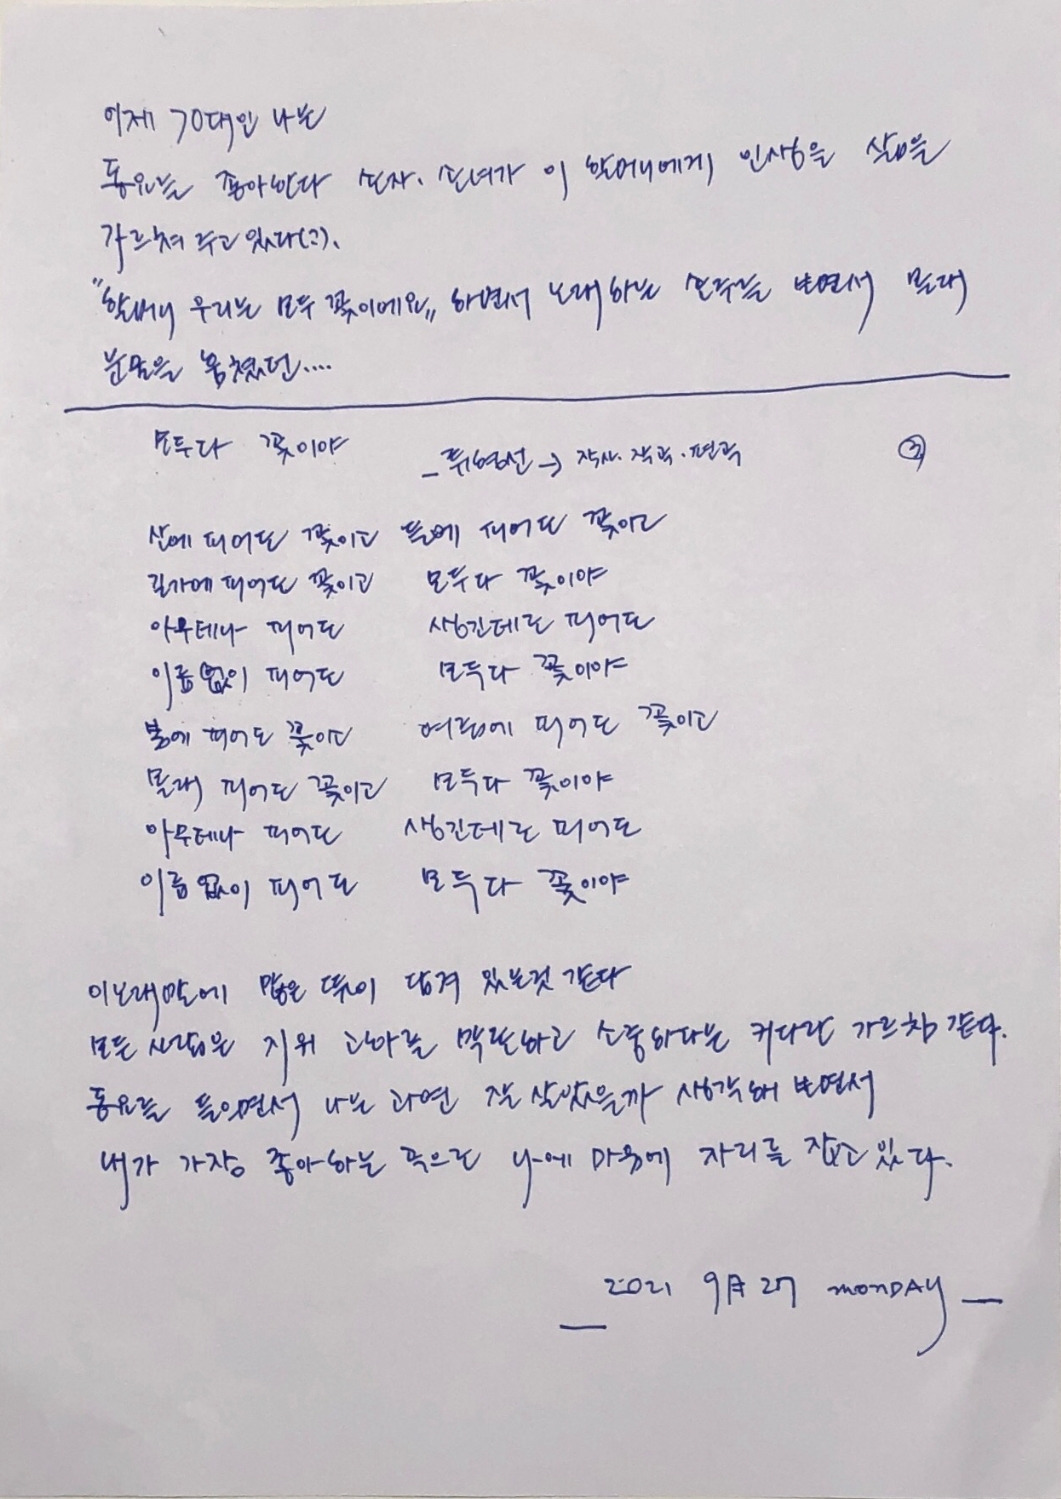 이제 70대인 나는
동요를 좋아한다 손자. 손녀가 이 할머니에게 인생을 삶을
가르쳐 주고 있다(고).
"할머니 우리는 모두 꽃이에요" 하면서 노래하는 손주를 보면서 몰래
눈물을 훔쳤던....
모두다 꽃이야
- 류형선 → 작사. 작곡. 편곡 ③
산에 피어도 꽃이고 들에 피어도 꽃이고
길가에 피어도 꽃이고 모두다 꽃이야
아무데나 피어도 생긴데로 피어도
이름 없이 피어도 모두다 꽃이야
봄에 피어도 꽃이고 여름에 피어도 꽃이고
몰래 피어도 꽃이고 모두다 꽃이야
아무데나 피어도 생긴데로 피어도
이름 없이 피어도 모두다 꽃이야
이노래말에 많은 뜻이 담겨 있는것 같다
모든 사람은 지위 고하를 막론하고 소중하다는 커다란 가르침 같다.
동요를 들으면서 나는 과연 잘 살았을까 생각해 보면서
내가 가장 좋아하는 곡으로 나에 마음에 자리를 잡고 있다.
— 2021 9月 27 monDAY —